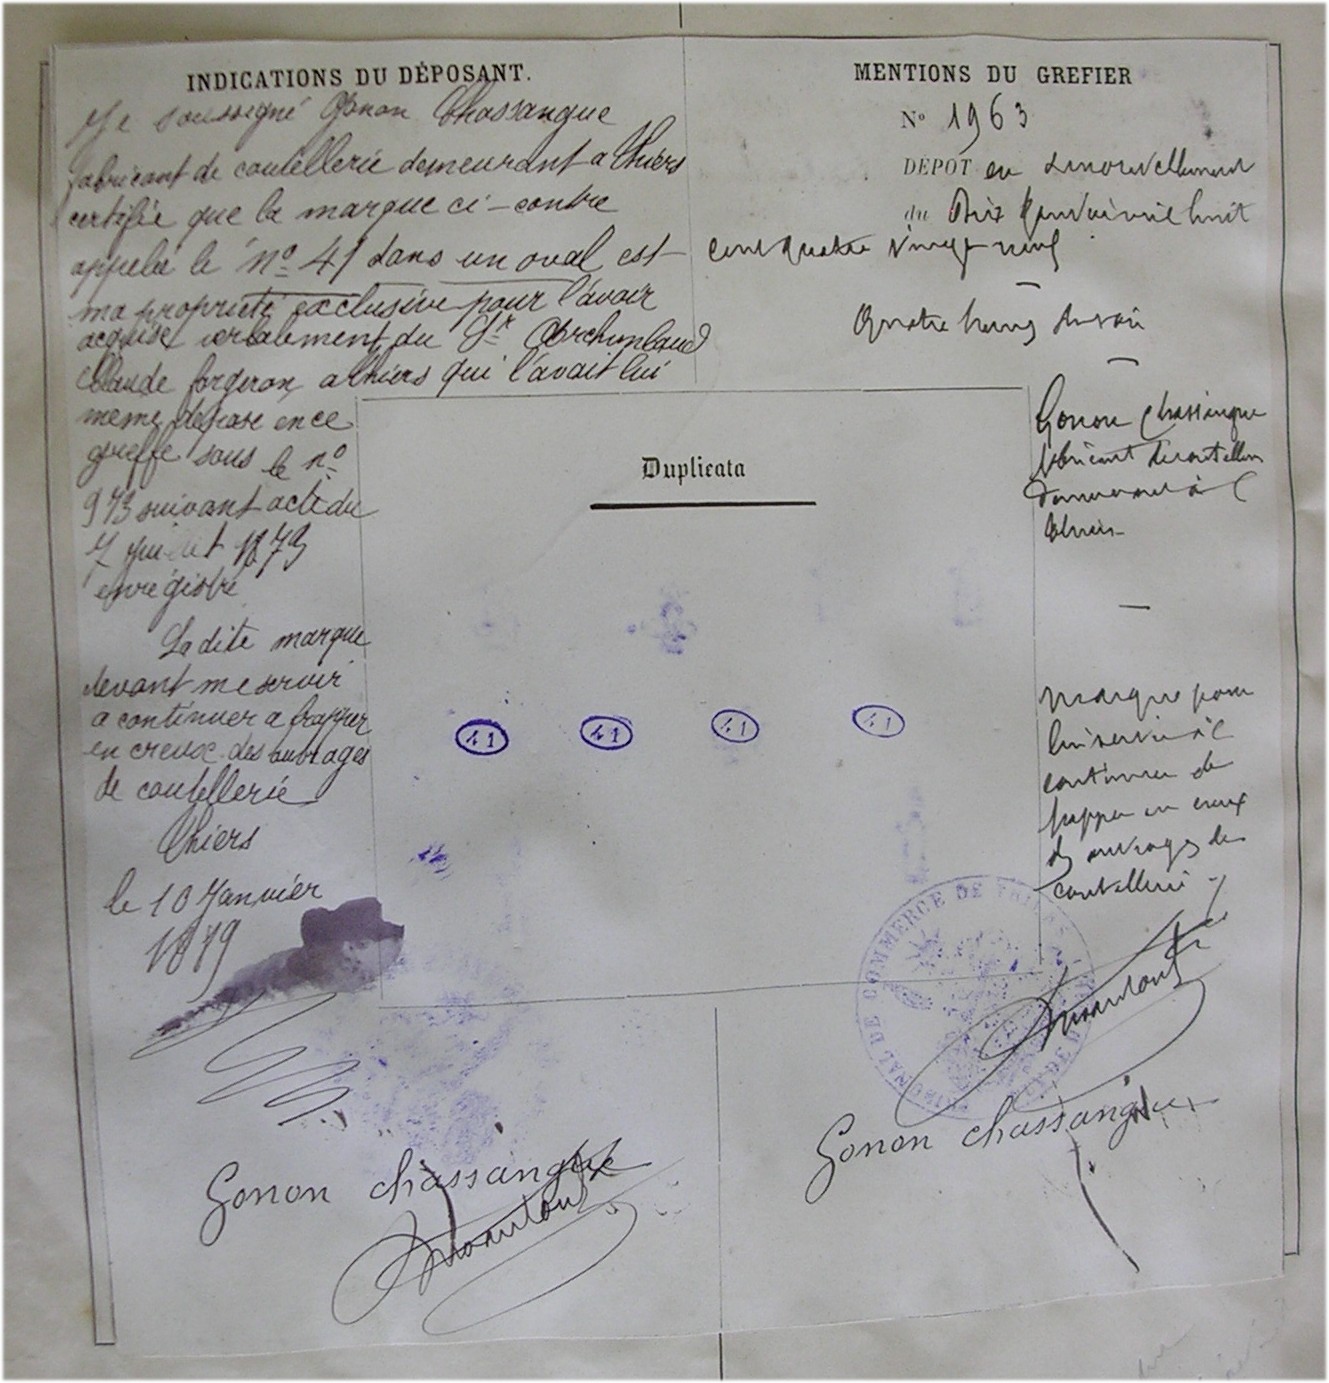 INDICATIONS DU DÉPOSANT.
Je soussigné Gonon Chassangue
fabricant de coutellerie demeurant a Thiers
certifie que la marque ci-contre
appelée le no 41 dans un oval est
ma propriété exclusive pour l'avoir
acquise verbalement du Sr Archimbaud
Claude forgeron a thiers qui l'avait lui
meme déposé en ce
greffe sous le no
973 suivant acte du
7 juillet 1873
enregistré
La dite marque
devant me servir
a continuer a frapper
en creux des ouvrages
de coutellerie
Thiers
le 10 Janvier
1879
Gonon chassangue
MENTIONS DU GREFIER
No 1963
DÉPOT en renouvellement
du Dix Janvier mil huit
cent quatre vingt neuf
quatre heures du soir
Gonon Chassangue
fabricant de coutellerie
demeurant à
Thiers
marque pour
lui servir à
continuer de
frapper en creux
des ouvrages de
coutellerie
Duplicata
41 41 41 41
TRIBUNAL DE COMMERCE DE
Gonon chassangue